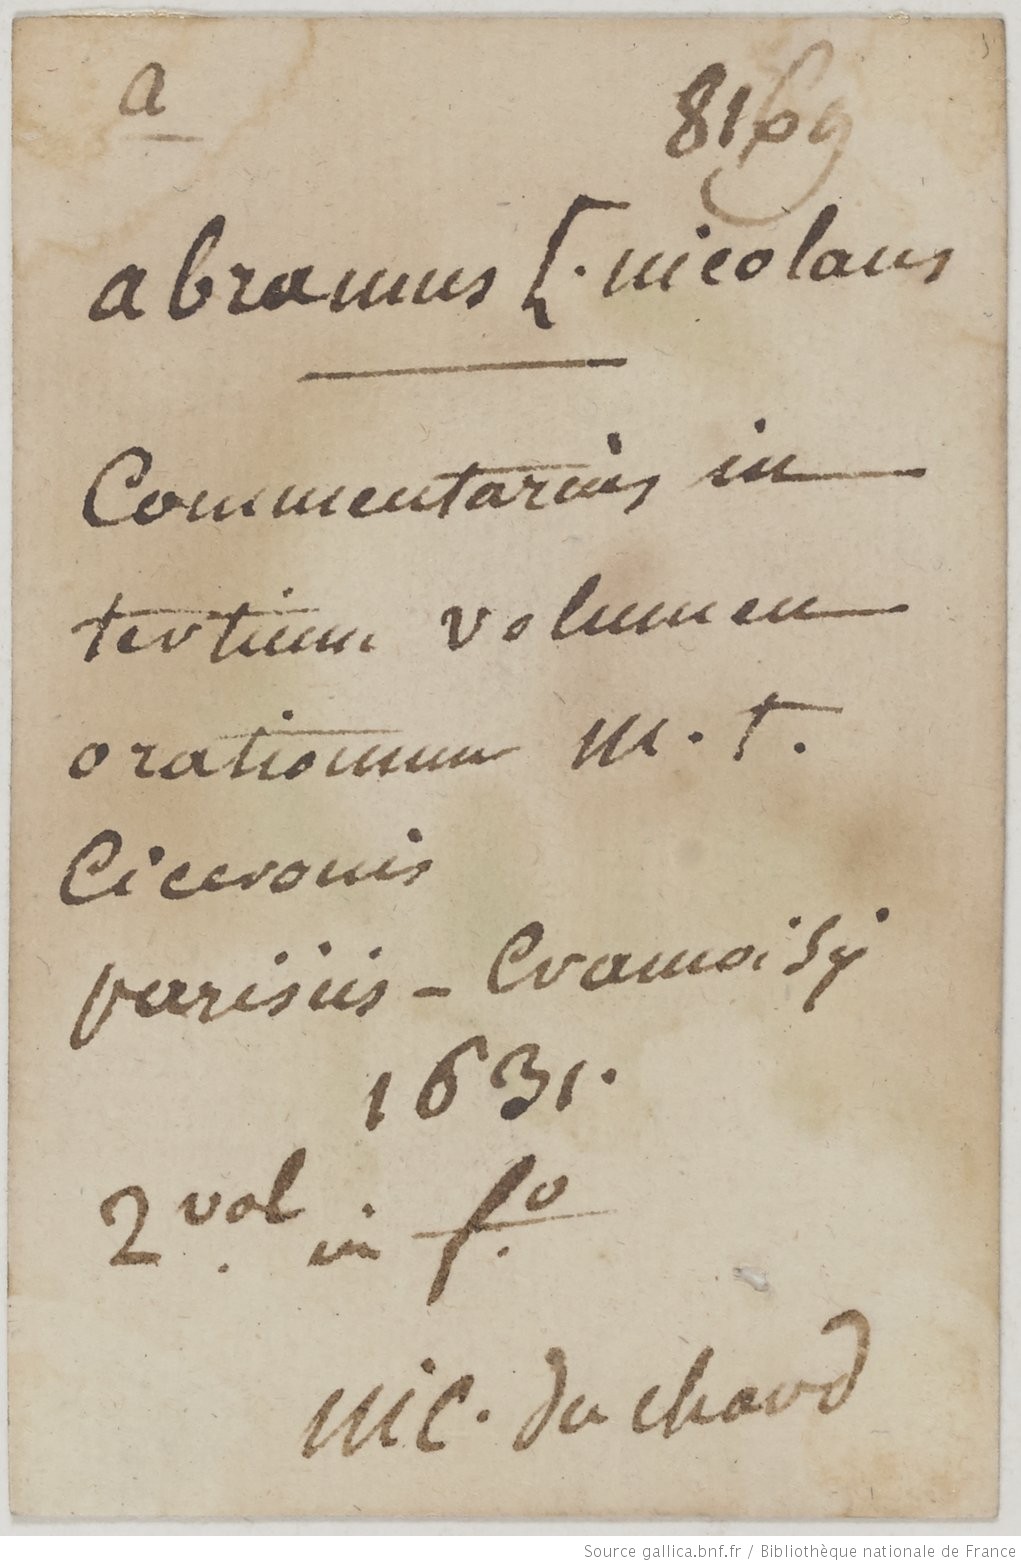 a
8169
abramus [. nicolaus
Commentarius in
tertium volumen
orationum M. T.
Ciceronis
parisiis - Cramoisy
1631.
2 vol. in f.o
nic. du chard
Source gallica.bnf.fr / Bibliothèque nationale de France